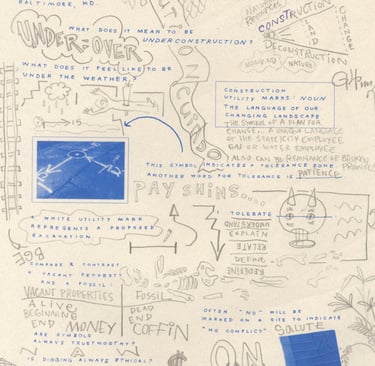 BALTIMORE, MD.
WHAT DOES IT MEAN TO BE
UNDER CONSTRUCTION?
UNDER-OVER
WHAT DOES IT FEEL LIKE TO BE
UNDER THE WEATHER?
CONSTRUCTION
LAND
CHANGE
DECONSTRUCTION
NATURE
CONSTRUCTION
UTILITY MARKS: NOUN
THE LANGUAGE OF OUR
CHANGING LANDSCAPE
THE SYMBOL OF A PLAN FOR
CHANGE... A UNIQUE LANGUAGE
GAS OR WATER
ALSO CAN BE
THIS SYMBOL INDICATES A TOLERANCE ZONE
ANOTHER WORD FOR TOLERANCE IS PATIENCE
PAY SHINS....
A WHITE UTILITY MARK
REPRESENTS A PROPOSED
EXCAVATION.
TOLERATE
UNDERSTAND
EXPLAIN
RELATE
DEFINE
REDEFINE
BGE
COMPARE & CONTRAST
A VACANT PROPERTY
AND A FOSSIL
VACANT PROPERTIES
ALIVE
BEGINNING
END
MONEY
Fossil
DEAD
END
COFFIN
ARE SYMBOLS
ALWAYS TRUSTWORTHY?
IS DIGGING ALWAYS ETHICAL?
OFTEN "NO" WILL BE
MARKED ON A SITE TO INDICATE
"NO CONFLICT"
SALUTE
ON